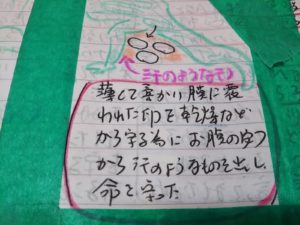 汗のようなもの
薄くて柔かい膜に覆
われた卵を乾燥など
から守る為にお腹の穴
から汗のようなものを出し
命を守った